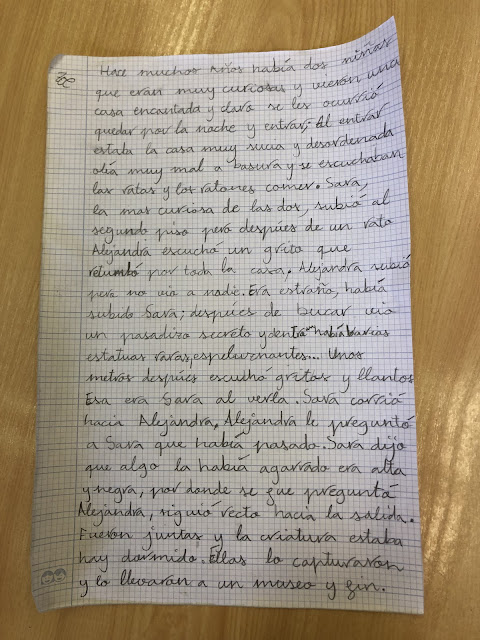 Hace muchos años había dos niñas
que eran muy curiosas y vieron una
casa encantada y claro se les ocurrió
quedar por la noche y entrar, al entrar
estaba la casa muy sucia y desordenada
olía muy mal a basura y se escuchaban
las ratas y los ratones comer. Sara,
la mas curiosa de las dos, subió al
segundo piso pero despúes de un rato
Alejandra escuchó un grito que
retumbó por toda la casa. Alejandra subió
pero no vio a nadie. Era estraño, había
subido Sara; despúes de bucar vio
un pasadizo secreto y dentro había barias
estatuas raras, espeluznantes... Unos
metros despúes escuchó gritos y llantos
Esa era Sara al verla. Sara corrió
hacia Alejandra, Alejandra le preguntó
a Sara que había pasado. Sara dijo
que algo la había agarrado era alta
y negra, por donde se fue preguntó
Alejandra, siguió recto hacia la salida.
Fueron juntas y la criatura estaba
hay dormido. Ellas lo capturaron
y lo llevaron a un museo y fin.